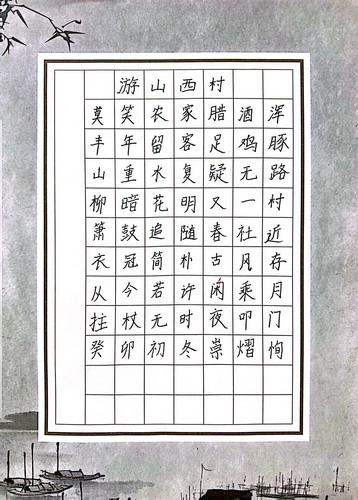 游山西村
莫笑农家腊酒浑
丰年留客足鸡豚
山重水复疑无路
柳暗花明又一村
箫鼓追随春社近
衣冠简朴古风存
从今若许闲乘月
拄杖无时夜叩门
癸卯初冬崇熠恂